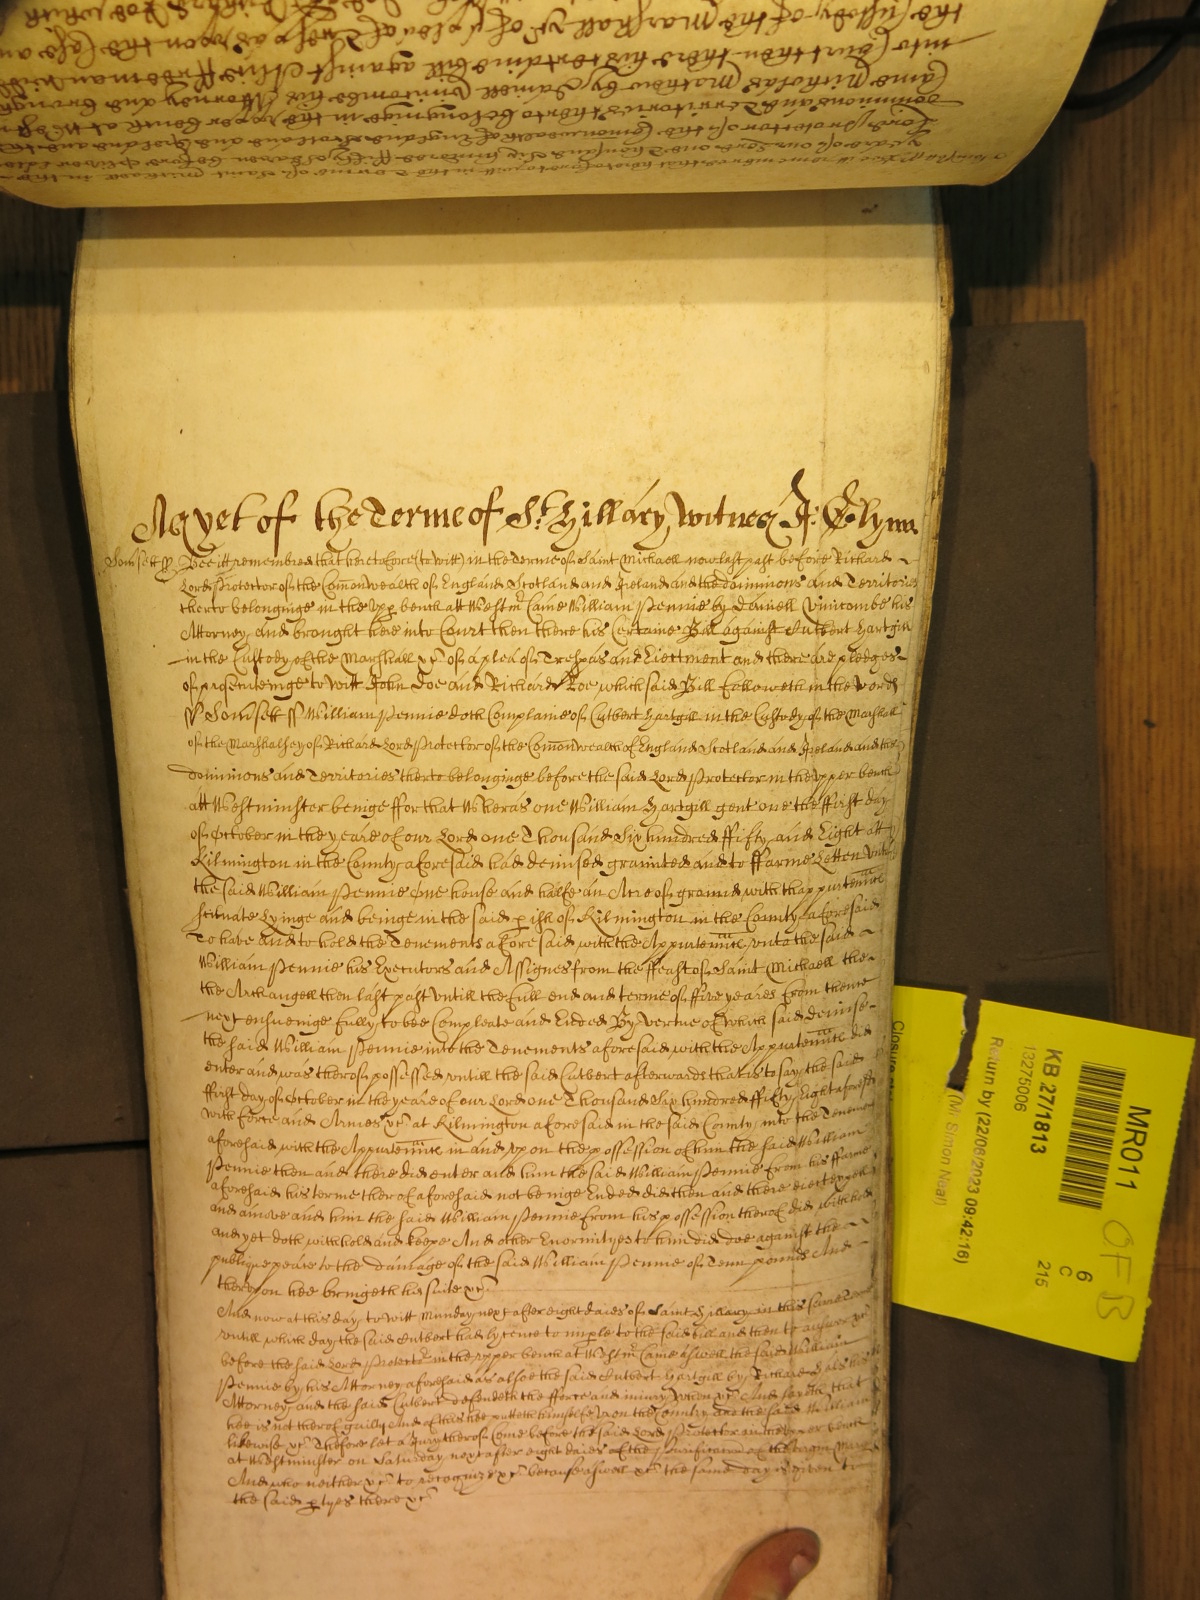 As yet of the Terme of St. Hillary, Witnes J: Glynn
Somsett ss Bee itt remembred that heretofore (to witt) in the Terme of Saint Michaell now last past before Richard
Lord Protector of the Comonwealth of England Scotland and Ireland and the dominions and Territories
therto belonginge in the upp bench att Westmr Came William Pennie by Daniell Vinicombe his
Attorney, and brought here into Court then there his Certaine Bill against Cutbert Hartgill
in the Custody of the Marshall &c of a plea of Trespas and Eiectment and there are pledges
of prosecuteinge to witt John Doe and Richard Roe which said Bill followeth in these words
ss Somsett ss William Pennie doth Complaine of Cutbert Hartgill in the Custody of the Marshall
of the Marshalsey of Richard Lord Protector of the Comonwealth of England Scotland and Ireland and the
dominions and Territories therto belonginge before the said Lord Protector in the upper bench
att Westminster beinge ffor that Wheras one William Hartgill gent one the ffirst day
of October in the yeare of our Lord one Thousand Six hundred ffifty and Eight att
Kilmington in the County aforesaid had demised graunted and to ffarme Letten unto
the said William Pennie One house and halfe an Acre of ground with thappurtennce
scituate Lyinge and beinge in the said pish of Kilmington in the County aforesaid
To have and to hold the Tenements aforesaid with the Appurtennce unto the said
William Pennie his Executors and Assignes from the ffeast of Saint Michaell the
the Archangell then last past untill the full end and terme of ffive yeares from thence
next ensueinge fully to bee Compleate and Ended By vertue of which said demise
the said William Pennie into the Tenements aforesaid with the Appurtennce did
enter and was therof possessed untill the said Cutbert afterwards that is to say the said
ffirst day of October in the yeare of our Lord one Thousand Six hundred ffifty Eight aforesd
with fforce and Armes &c at Kilmington aforesaid in the said County into the Tenements
aforesaid with the Appurtennce in and upon the possession of him the said William
Pennie then and there did enter and him the said William Pennie from his ffarme
aforesaid his terme therof aforesaid not beinge Ended did then and there eiect expell
and amove and him the said William Pennie from his possession therof did withhold
and yet doth withhold and keepe And other Enormityes to him did doe against the
publique peace to the damage of the said William Pennie of Tenn pounds And
therupon hee bringeth his suite &c
And now at this day to witt Munday next after eight daies of Saint Hillary in this same Terme
untill which day the said Cutbert had lycence to imple to the said bill and then to answer &c
before the said Lord Protectr in the upper bench at Westmr Came aswell the said William
Pennie by his Attorney aforesaid as alsoe the said Cutbert Hartgill by Richard Hales his
Attorney and the said Cutbert defendeth the fforce and iniury when &c And sayeth that
hee is not therof guilty And of this hee putteth himselfe upon the Country And the said William
likewise &c Therfore let a Jury therof Come before the said Lord Protector in the upper bench
at Westminster on Saturday next after eight daies of the Purificacon of the virgin Mary
And who neither &c to recognize &c because aswell &c the same day is given to
the said ptyes there &c
MR011
KB 27/1813
13275006
Return by (22/06/2023 09:42:16)
(Mr Simon Neal)
6
C
215
OF B